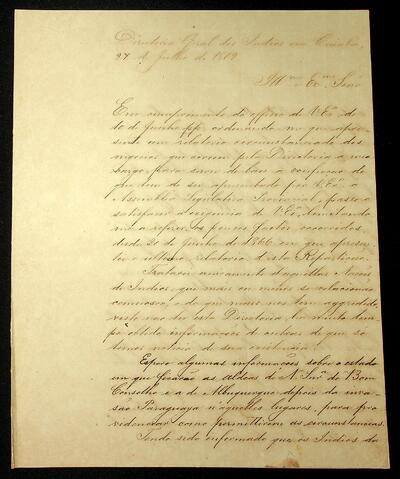 Directoria Geral dos Indios em Cuiabá,
27 de Julho de 1869
Illmo Exmo Senr
Em cumprimento do officio de V. Exa de
10 de Junho pp. ordenando-me que apre-
sente um relatorio circunstanciado dos
negocios que correm pela Directoria a meu
cargo, para servir de base á confecção do
que tem de ser apresentado por V. Exa á
Assemblea Legislativa Provincial, passo a
satisfazer a exigencia de V. Exa limitando
me a referir os poucos factos occorridos
desde 20 de Junho de 1866 em que apresen
tei o ultimo relatorio d'esta Repartição.
Tratarei unicamente d'aquellas Nações
de Indios, que mais ou menos se relacionão
comnosco, e do que mais nos tem aggredido,
visto não ter esta Directoria ha muito tem
po obtido informações de outras de que só
temos noticia de sua existencia.
Espero algumas informações sobre o estado
em que ficarão as aldeas de N. Snra do Bom
Conselho e a de Albuquerque depois da inva-
são Paraguaya n'aquelles lugares, para pro
videnciar como permittirem as circunstancias.
Tendo sido informado que os Indios da